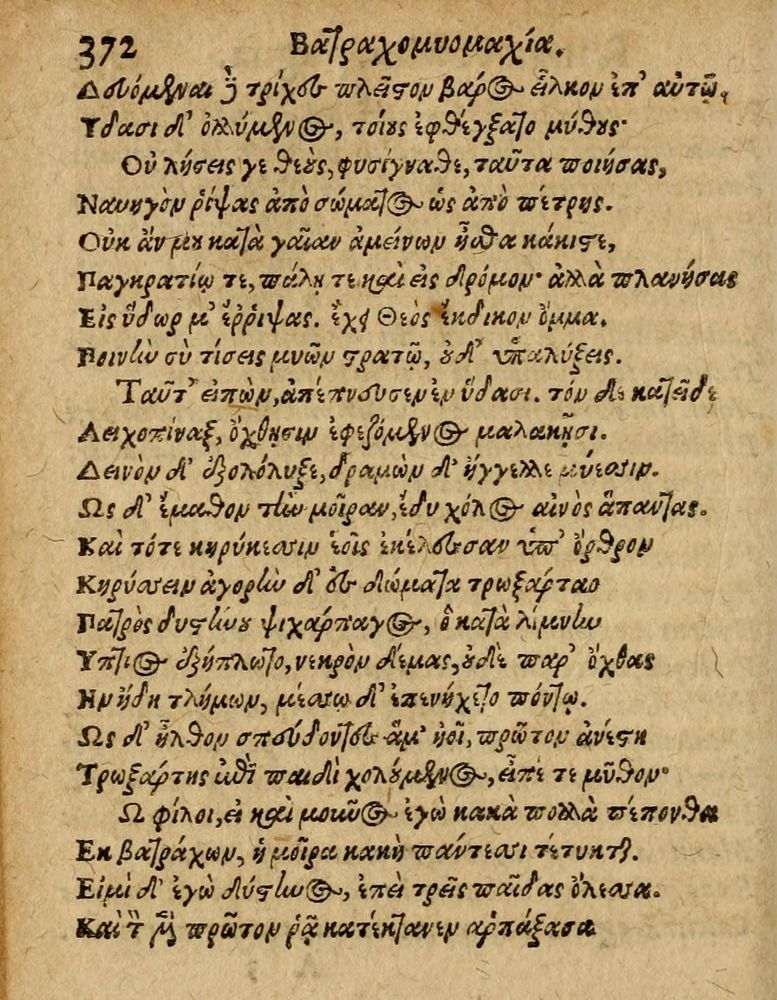 372 Βατραχομυομαχία.
Δευόμεναι δὲ τρίχες πλεῖστον βάρος εἷλκον ἐπ' αὐτῷ,
Υδασι δ' ὀλλύμενος, τοίους ἐφθέγξατο μύθους·
Οὐ λήσεις γε θεοὺς, φυσίγναθε, ταῦτα ποιήσας,
Ναυηγὸν ῥίψας ἀπὸ σώματος ὡς ἀπὸ πέτρης.
Οὐκ ἄν μου κατὰ γαῖαν ἀμείνων ἦσθα κάκιστε,
Παγκρατίῳ τε, πάλῃ τε καὶ εἰς δρόμον· ἀλλὰ πλανήσας
Εἰς ὕδωρ μ' ἔρριψας. ἔχει Θεὸς ἔκδικον ὄμμα.
Ποινὴν σὺ τίσεις μυῶν στρατῷ, οὐδ' ὑπαλύξεις.
Ταῦτ' εἰπὼν, ἀπέπνευσεν ἐν ὕδασι. τόν δε κατεῖδε
Λειχοπίναξ, ὄχθῃσιν ἐφεζόμενος μαλακῇσι.
Δεινὸν δ' ἐξολόλυξε, δραμὼν δ' ἤγγελλε μύεσσιν.
Ως δ' ἔμαθον τὴν μοῖραν, ἔδυ χόλος αἰνὸς ἅπαντας.
Καὶ τότε κηρύκεσσιν ἑοῖς ἐκέλευσαν ὑπ' ὄρθρον
Κηρύσσειν ἀγορὴν δ' ἐς δώματα τρωξάρταο
Πατρὸς δυστήνου ψιχάρπαγος, ὃ κατὰ λίμνην
Υπτιος ἐξήπλωτο, νεκρὸν δέμας, οὐδὲ παρ' ὄχθας
Ην ἤδη τλήμων, μέσσῳ δ' ἐπενήχετο πόντῳ.
Ως δ' ἦλθον σπεύδοντες ἅμ' ἠοῖ, πρῶτον ἀνέστη
Τρωξάρτης ἐπὶ παιδὶ χολούμενος, εἶπέ τε μῦθον·
Ω φίλοι, εἰ καὶ μοῦνος ἐγὼ κακὰ πολλὰ πέπονθα
Εκ βατράχων, ἡ μοῖρα κακὴ πάντεσσι τέτυκται.
Εἰμὶ δ' ἐγὼ δύστηνος, ἐπεὶ τρεῖς παῖδας ὄλεσσα.
Καὶ τὸν μὲν πρῶτον ῥᾷ κατέκτανεν αρπάξασα